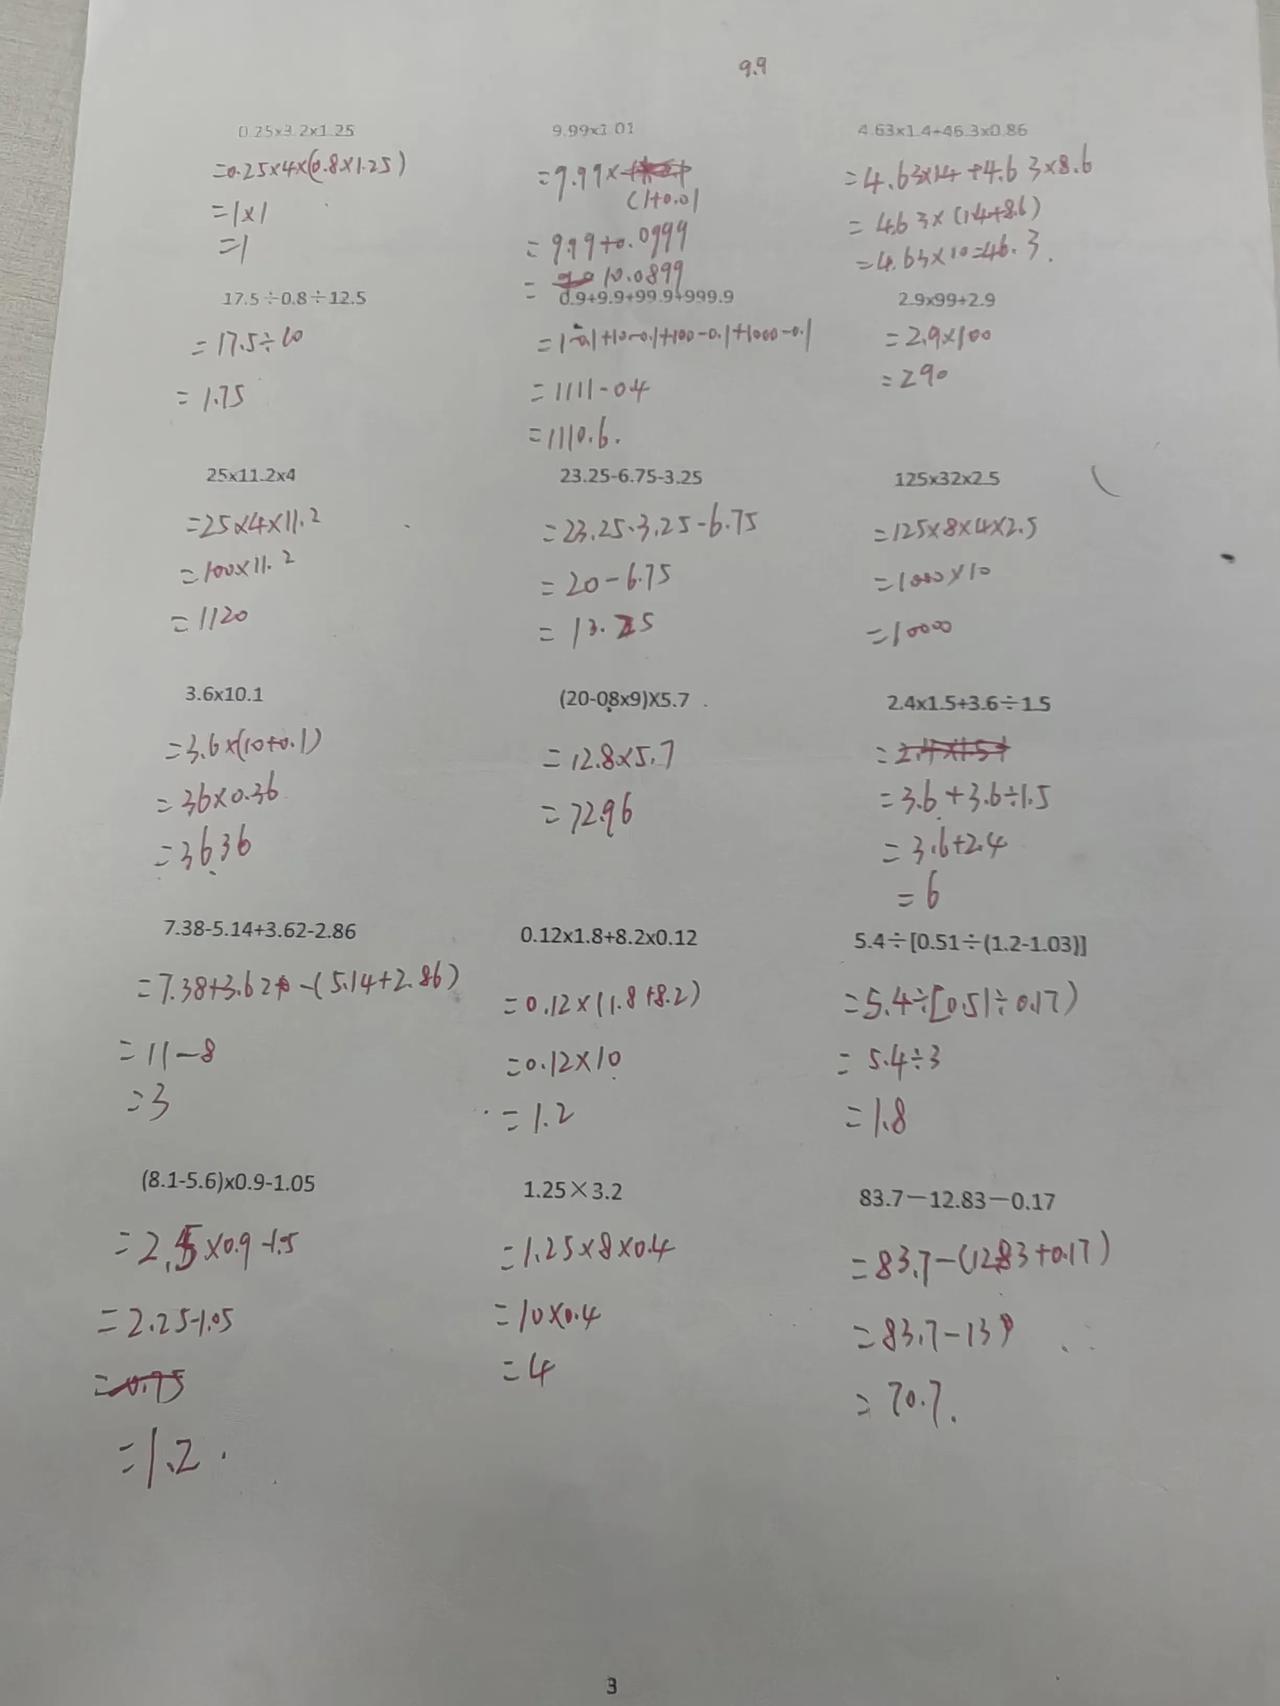 9.9
0.25x3.2x1.25
=0.25×4×(0.8×1.25)
=1×1
=1
9.99x1.01
=9.99×
(1+0.01
=9.99+0.0999
= 10.0899
4.63x1.4+46.3x0.86
=4.63×1.4+4.63×8.6
=4.63×(1.4+8.6)
=4.63×10=46.3.
17.5÷0.8÷12.5
=17.5÷10
=1.75
0.9+9.9+99.9+999.9
=1-0.1+10-0.1+100-0.1+1000-0.1
=1111-0.4
=1110.6.
2.9x99+2.9
=2.9×100
=290
25x11.2x4
=25×4×11.2
=100×11.2
=1120
23.25-6.75-3.25
=23.25-3.25-6.75
=20-6.75
=13.25
125x32x2.5
=125×8×4×2.5
=1000×10
=10000
3.6x10.1
=3.6×(10+0.1)
=36×0.36
=36.36
(20-0.8x9)X5.7
=12.8×5.7
=72.96
2.4x1.5+3.6÷1.5
=2.4×1.5+
=3.6+3.6÷1.5
=3.6+2.4
=6
7.38-5.14+3.62-2.86
=7.38+3.62-(5.14+2.86)
=11-8
=3
0.12x1.8+8.2x0.12
=0.12×(1.8+8.2)
=0.12×10
=1.2
5.4÷[0.51÷(1.2-1.03)]
=5.4÷[0.51÷0.17)
=5.4÷3
=1.8
(8.1-5.6)x0.9-1.05
=2.5×0.9-1.5
=2.25-1.05
=0.75
=1.2.
1.25×3.2
=1.25×8×0.4
=10×0.4
=4
83.7－12.83－0.17
=83.7-(12.83+0.17)
=83.7-13
=70.7.
3